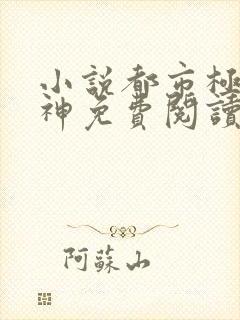 小説都市極
神免費閱讀
阿蘇山